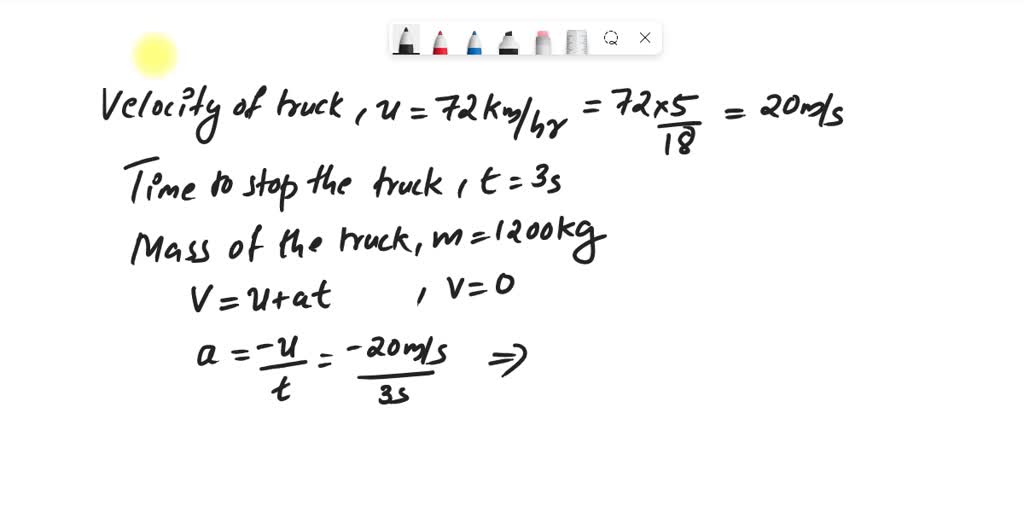 Velocity of truck, u = 72 km/hr = 72×5/18 = 20 m/s
Time to stop the truck, t = 3s
Mass of the truck, m = 1200kg
V = u+at , V = 0
a = -u/t = -20 m/s/3s ⇒